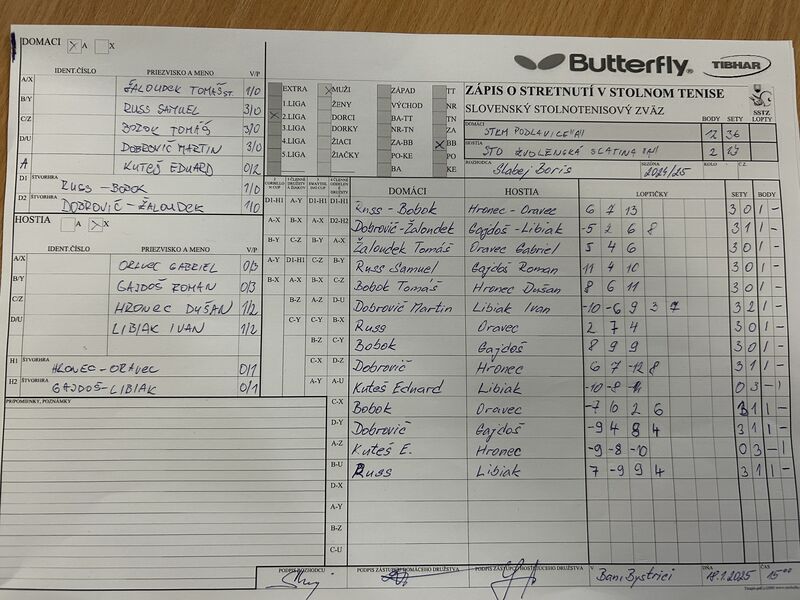 DOMACI X A X
IDENT.ČÍSLO PRIEZVISKO A MENO V/P
A/X ŽALOUDEK TOMÁŠ ST. 1/0
B/Y RUSS SAMUEL 3/0
C/Z BOBOK TOMÁŠ 3/0
D/U DOBROVIČ MARTIN 3/0
A KUTEŠ EDUARD 0/2
D1 ŠTVORHRA RUSS - BOBOK 1/0
D2 ŠTVORHRA DOBROVIČ - ŽALOUDEK 1/0
HOSTIA A X X
IDENT.ČÍSLO PRIEZVISKO A MENO V/P
A/X ORAVEC GABRIEL 0/3
B/Y GAJDOŠ ROMAN 0/3
C/Z HRONEC DUŠAN 1/2
D/U LIBIAK IVAN 1/2
H1 ŠTVORHRA HRONEC - ORAVEC 0/1
H2 ŠTVORHRA GAJDOŠ - LIBIAK 0/1
PRIPOMIENKY, POZNÁMKY
Butterfly TIBHAR
EXTRA X MUŽI ZÁPAD TT
1.LIGA ŽENY VÝCHOD NR
X 2.LIGA DORCI BA-TT TN
3.LIGA DORKY NR-TN ZA
4.LIGA ŽIACI ZA-BB X BB
5.LIGA ŽIAČKY PO-KE PO
BA KE
ZÁPIS O STRETNUTÍ V STOLNOM TENISE
SLOVENSKÝ STOLNOTENISOVÝ ZVÄZ
SSTZ
BODY SETY LOPTY
DOMÁCI STKM PODLAVICE "A" 12 36
HOSTIA STO ZVOLENSKÁ SLATINA "A" 2
ROZHODCA Slabej Boris SEZÓNA 2024/25 KOLO Č.Z.
DOMÁCI HOSTIA LOPTIČKY SETY BODY
D1-H1 A-Y D1-H1 D1-H1 Russ - Bobok Hronec - Oravec 6 7 13 3 0 1 -
A-X B-X A-X D2-H2 Dobrovič - Žaloudek Gajdoš - Libiak -5 2 6 8 3 1 1 -
B-Y C-Z B-Y A-X Žaloudek Tomáš Oravec Gabriel 5 4 6 3 0 1 -
A-Y D1-H1 C-Z B-Y Russ Samuel Gajdoš Roman 11 4 10 3 0 1 -
B-X A-X B-X C-Z Bobok Tomáš Hronec Dušan 8 6 11 3 0 1 -
B-Z A-Z D-U Dobrovič Martin Libiak Ivan -10 -6 9 3 7 3 2 1 -
C-Y C-Y B-X Russ Oravec 2 7 4 3 0 1 -
B-Z C-Y Bobok Gajdoš 8 9 9 3 0 1 -
C-X D-Z Dobrovič Hronec 6 7 -12 8 3 1 1 -
A-Y A-U Kuteš Eduard Libiak -10 -8 0 3 - 1
C-X Bobok Oravec -7 2 6 3 1 1 -
D-Y Dobrovič Gajdoš -9 4 8 4 3 1 1 -
A-Z Kuteš E. Hronec -9 -8 -10 0 3 - 1
B-U Russ Libiak 7 -9 9 4 3 1 1 -
D-X
A-Y
B-Z
C-U
PODPIS ROZHODCU PODPIS ZÁSTUPCU DOMÁCEHO DRUŽSTVA PODPIS ZÁSTUPCU HOSŤUJÚCEHO DRUŽSTVA V Banskej Bystrici DŇA 18.1.2025 ČAS 15°°